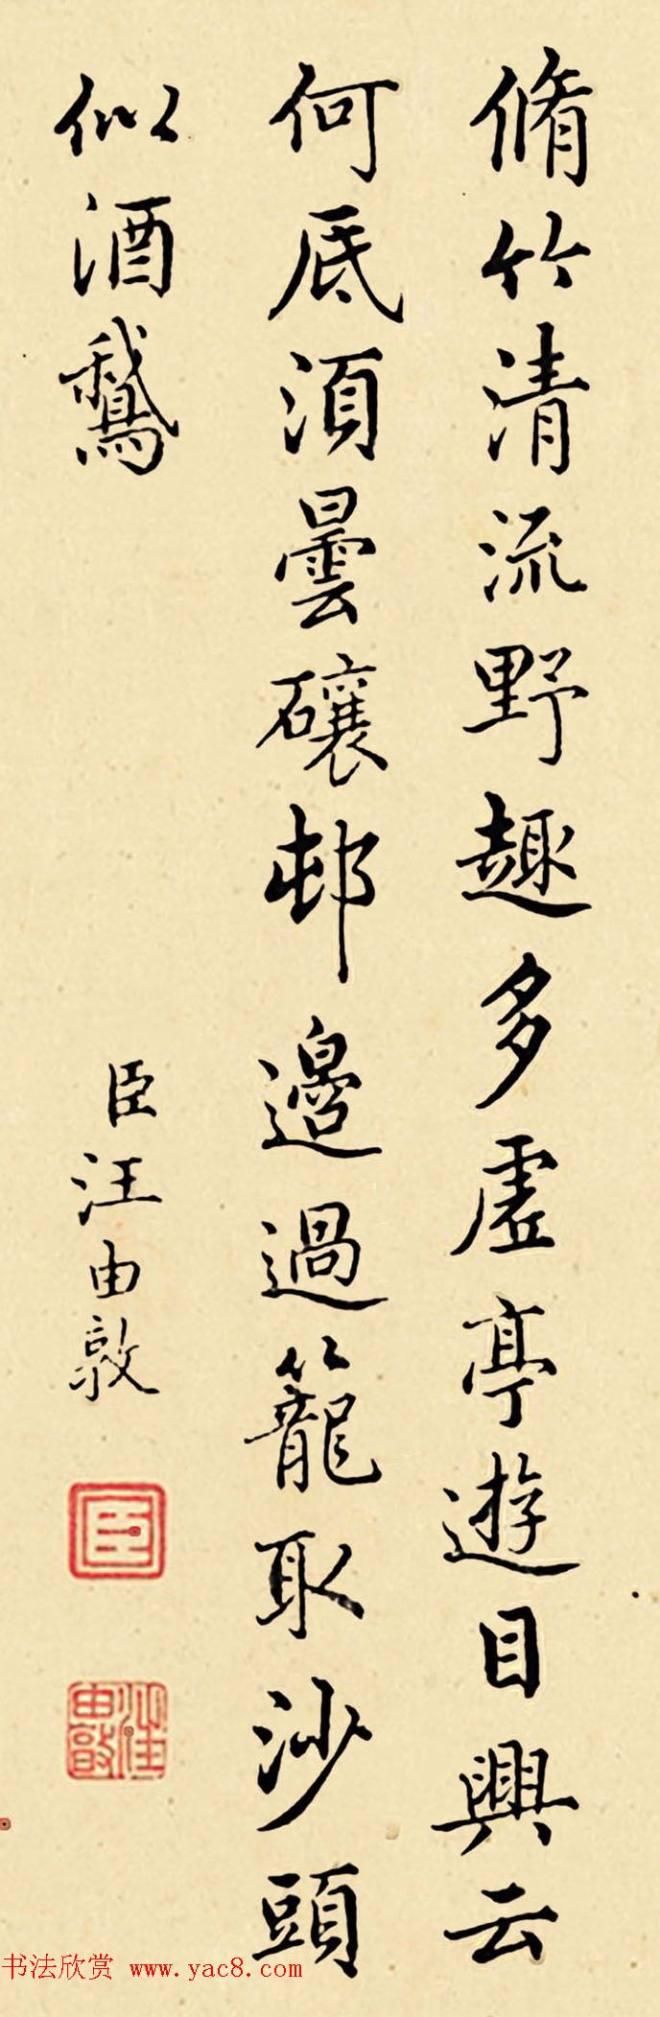 脩竹清流野趣多虛亭遊目興云
何底須曇礲邨邊過籠取沙頭
似酒鵞
臣汪由敦
臣
汪由敦
书法欣赏 www.yac8.com